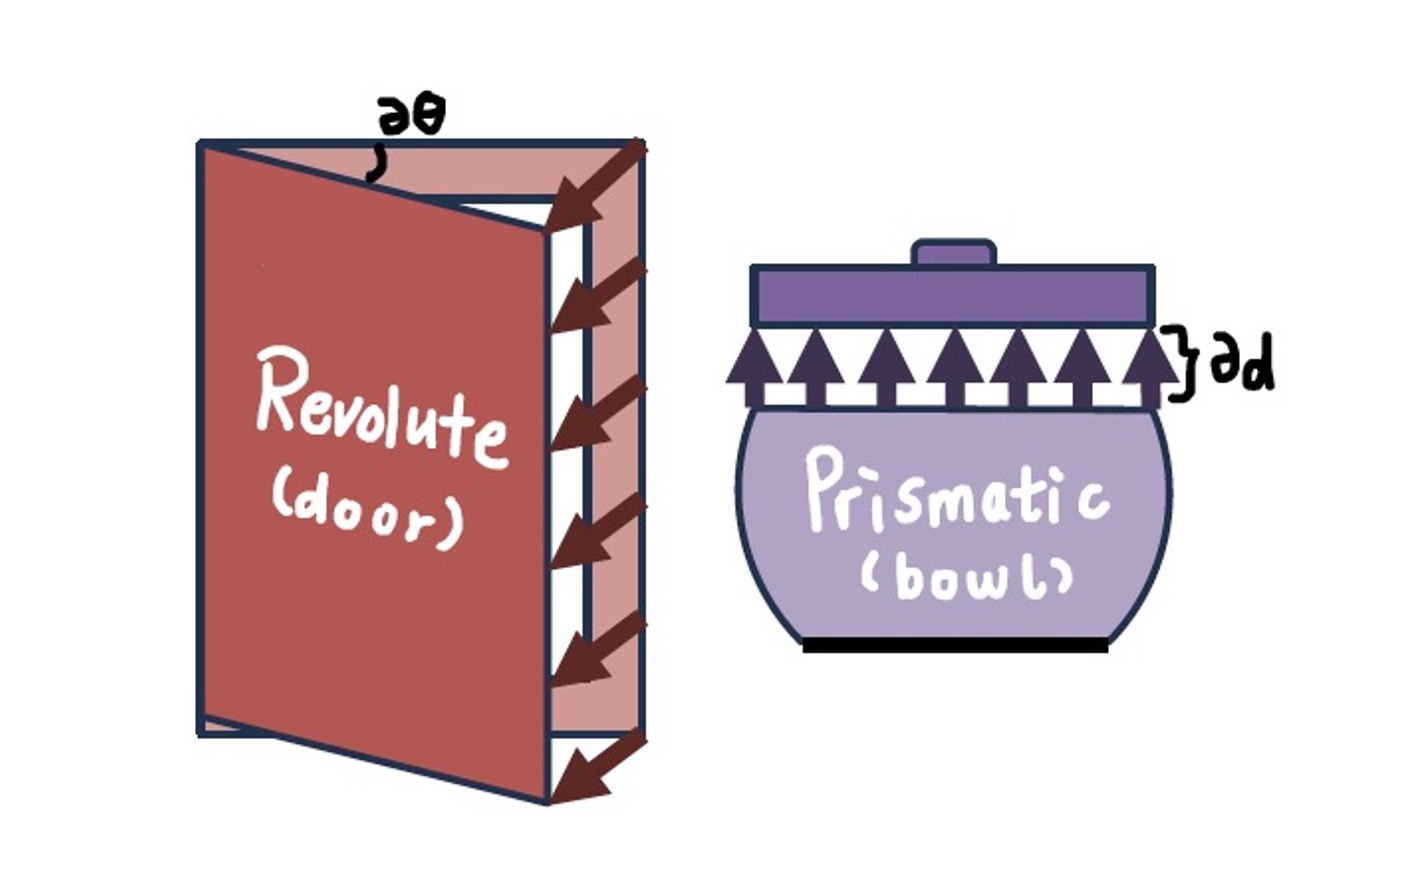 ∂θ
Revolute
(door)
∂d
Prismatic
(bowl)